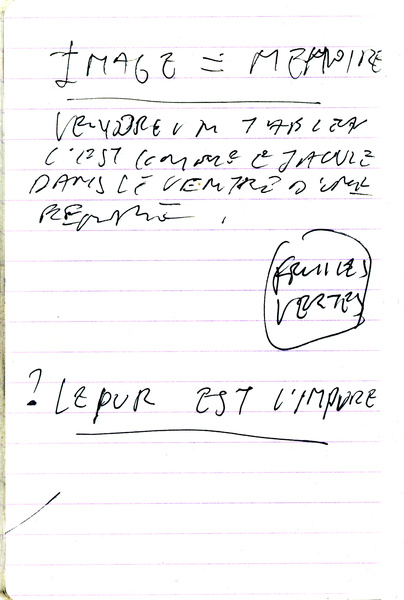 IMAGE = MEMOIRE
VENDRE UN TABLEAU
C'EST COMME EJACULE
DANS LE VENTRE D'UNE
FEUILLES
VERTES
? LE PUR EST L'IMPURE